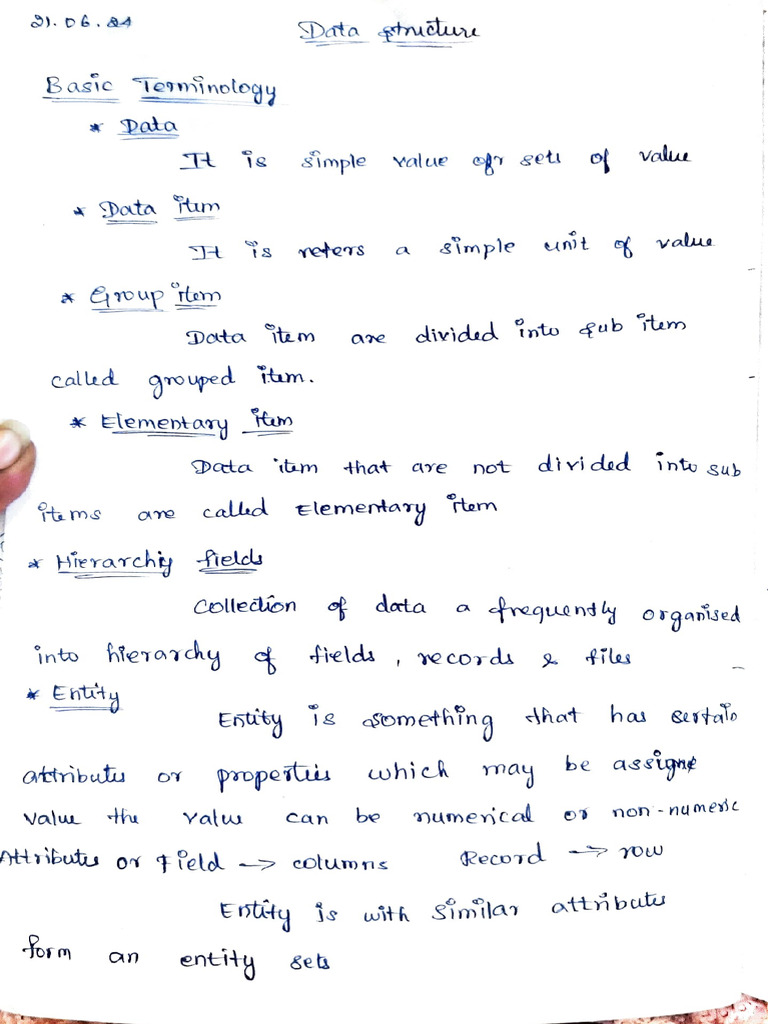 21.06.21
Data structure
Basic Terminology
* Data
It is simple value or sets of value
* Data item
It is refers a simple unit of value
* Group item
Data item are divided into sub item
called grouped item.
* Elementary item
Data item that are not divided into sub
items are called Elementary item
* Hierarchiy fields
Collection of data a frequently organised
into hierarchy of fields, records & files
* Entity
Entity is something that has sertain
attributes or properties which may be assigne
value the value can be numerical or non-numeric
Attributes or Field -> columns Record -> row
Entity is with similar attributes
form an entity sets